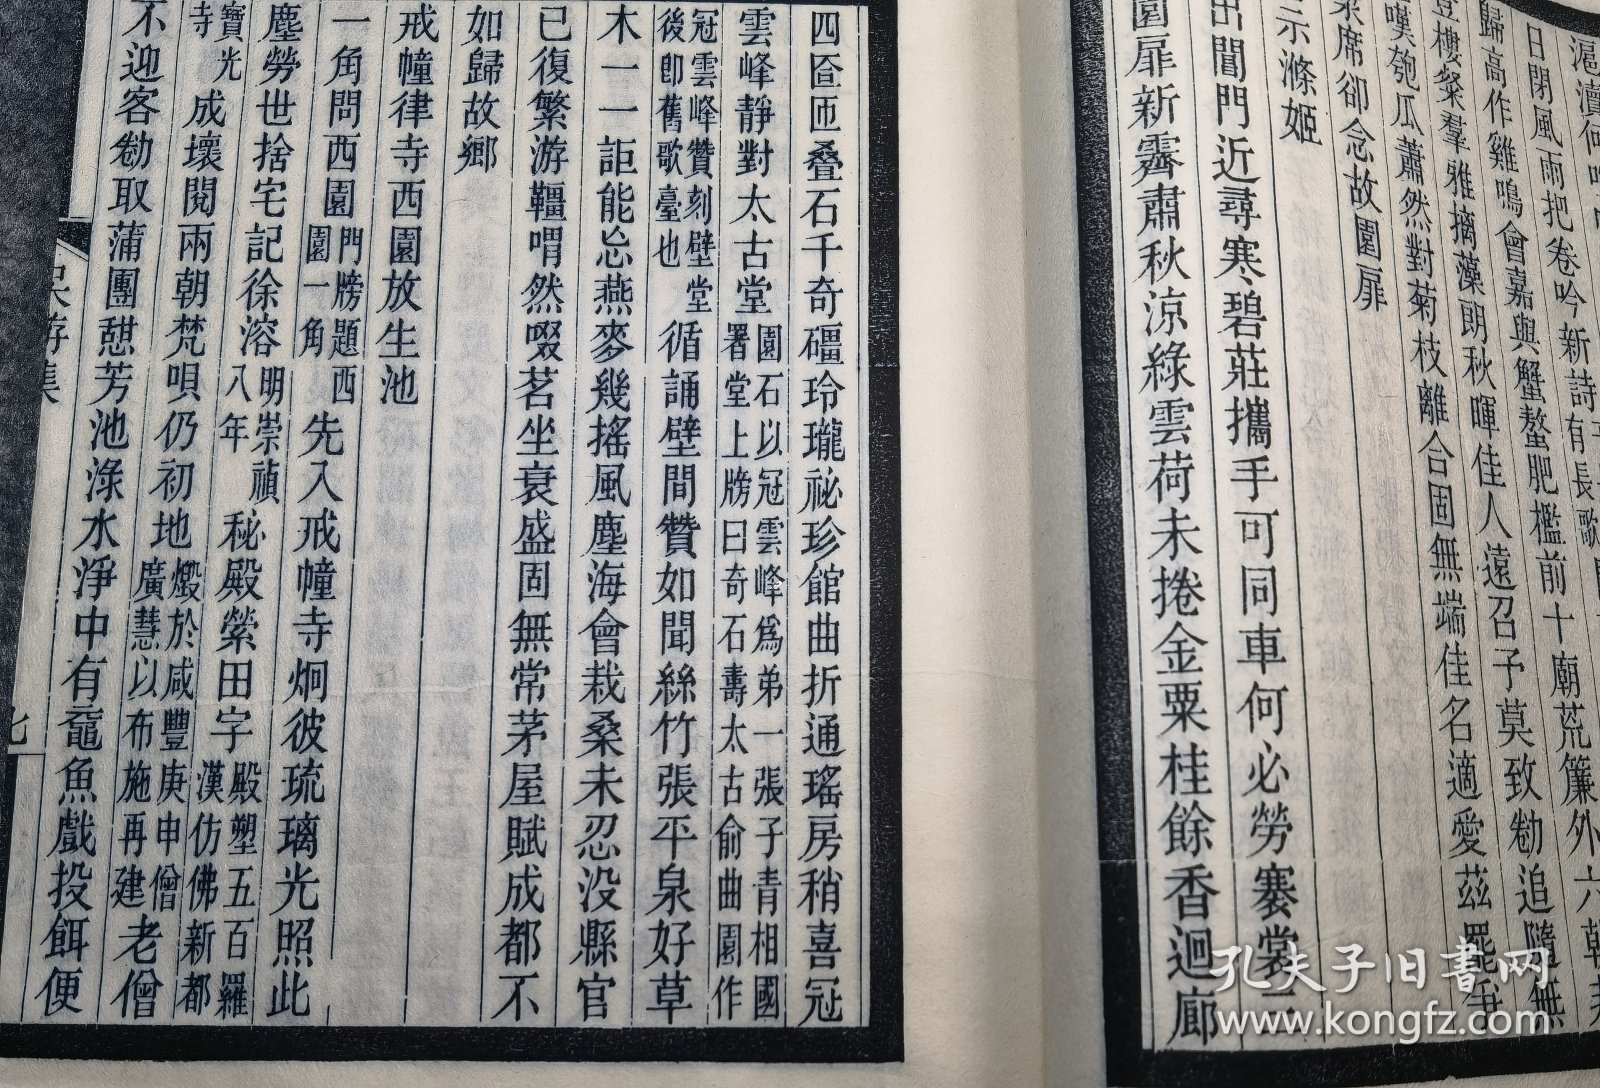 日閉風雨把卷吟新詩
歸高作雞鳴會嘉與蟹螯肥檻前十廟荒簾外六朝
登樓粲羣雅摛藻朗秋暉佳人遠召予莫致勉追隨無
嘆匏瓜蕭然對菊枝離合固無端佳名適愛茲
泉席卻念故園扉
示滌姬
出閶門近尋寒碧莊攜手可同車何必勞褰裳
園扉新霽肅秋涼綠雲荷未捲金粟桂餘香迴廊
四匼匝叠石千奇礓玲瓏祕珍館曲折通瑤房稍喜冠
雲峰靜對太古堂園石以冠雲峰爲弟一張子青相國署堂上牓曰奇石壽太古俞曲園作
冠雲峰贊刻壁堂後卽舊歌臺也循誦壁間贊如聞絲竹張平泉好草
木一一詎能忘燕麥幾搖風塵海會栽桑未忍没縣官
已復繁游韁喟然啜茗坐衰盛固無常茅屋賦成都不
如歸故鄉
戒幢律寺西園放生池
一角問西園門牓題西園一角先入戒幢寺炯彼琉璃光照此
塵勞世捨宅記徐溶明崇禎八年秘殿縈田字殿塑五百羅漢仿佛新都
寶光寺成壞閱兩朝梵唄仍初地燬於咸豐庚申僧廣慧以布施再建老僧
不迎客勉取蒲團憇芳池淥水淨中有黿魚戲投餌便
七
孔夫子旧書网
www.kongfz.com